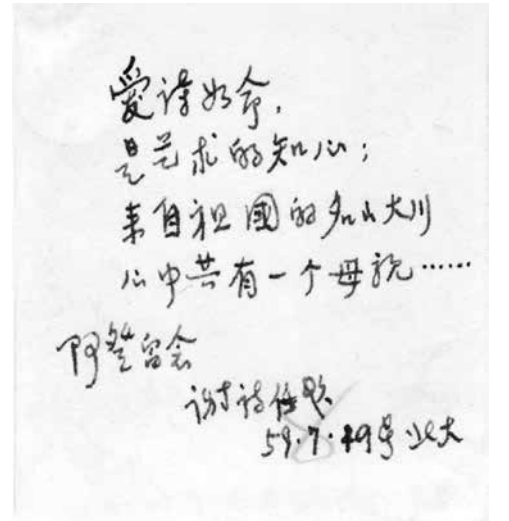 爱诗如命，
是艺术的知心；
来自祖國的名山大川
心中共有一个母親……
阿莹留念
谢诗
59.7.19号 北大